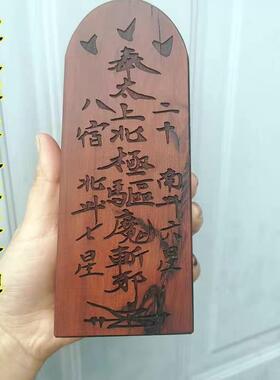 二十
南斗六星
奉太上北極驅魔斬邪
八宿
北斗七星